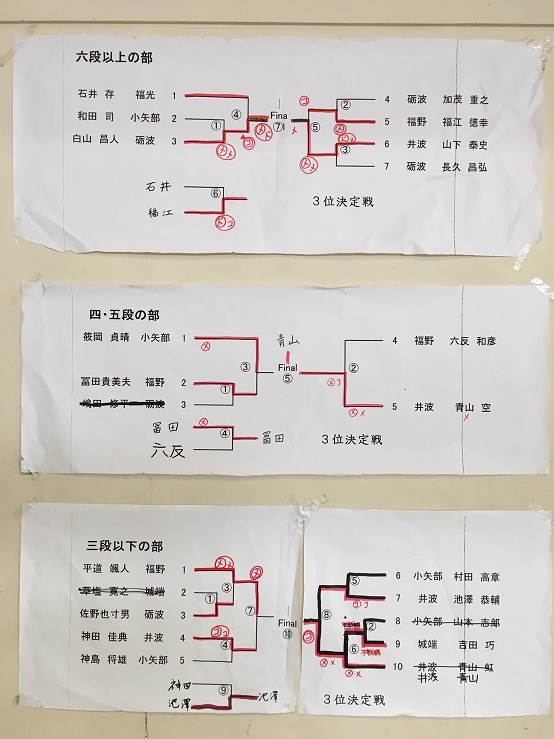 六段以上の部
石井 存 福光 1
和田 司 小矢部 2
白山 昌人 砺波 3
① ④ Final ⑦ ⑤ ② ③
4 砺波 加茂 重之
5 福野 福江 徳幸
6 井波 山下 泰史
7 砺波 長久 昌弘
石井
福江
⑥
3位決定戦
四・五段の部
筱岡 貞晴 小矢部 1
冨田貴美夫 福野 2
嶋田 修平 砺波 3
① ③
青山
Final
⑤
②
4 福野 六反 和彦
5 井波 青山 空
冨田
六反
④
冨田
3位決定戦
三段以下の部
平道 颯人 福野 1
寛之 城端 2
佐野也寸男 砺波 3
神田 佳典 井波 4
神島 将雄 小矢部 5
① ③ ④ ⑦
Final
⑩
⑧ ⑤ ② ⑥
6 小矢部 村田 高章
7 井波 池澤 恭輔
8 小矢部 山本 志郎
9 城端 吉田 巧
10 井波 青山 虹
井波 青山
神田
池澤
⑨
池澤
3位決定戦